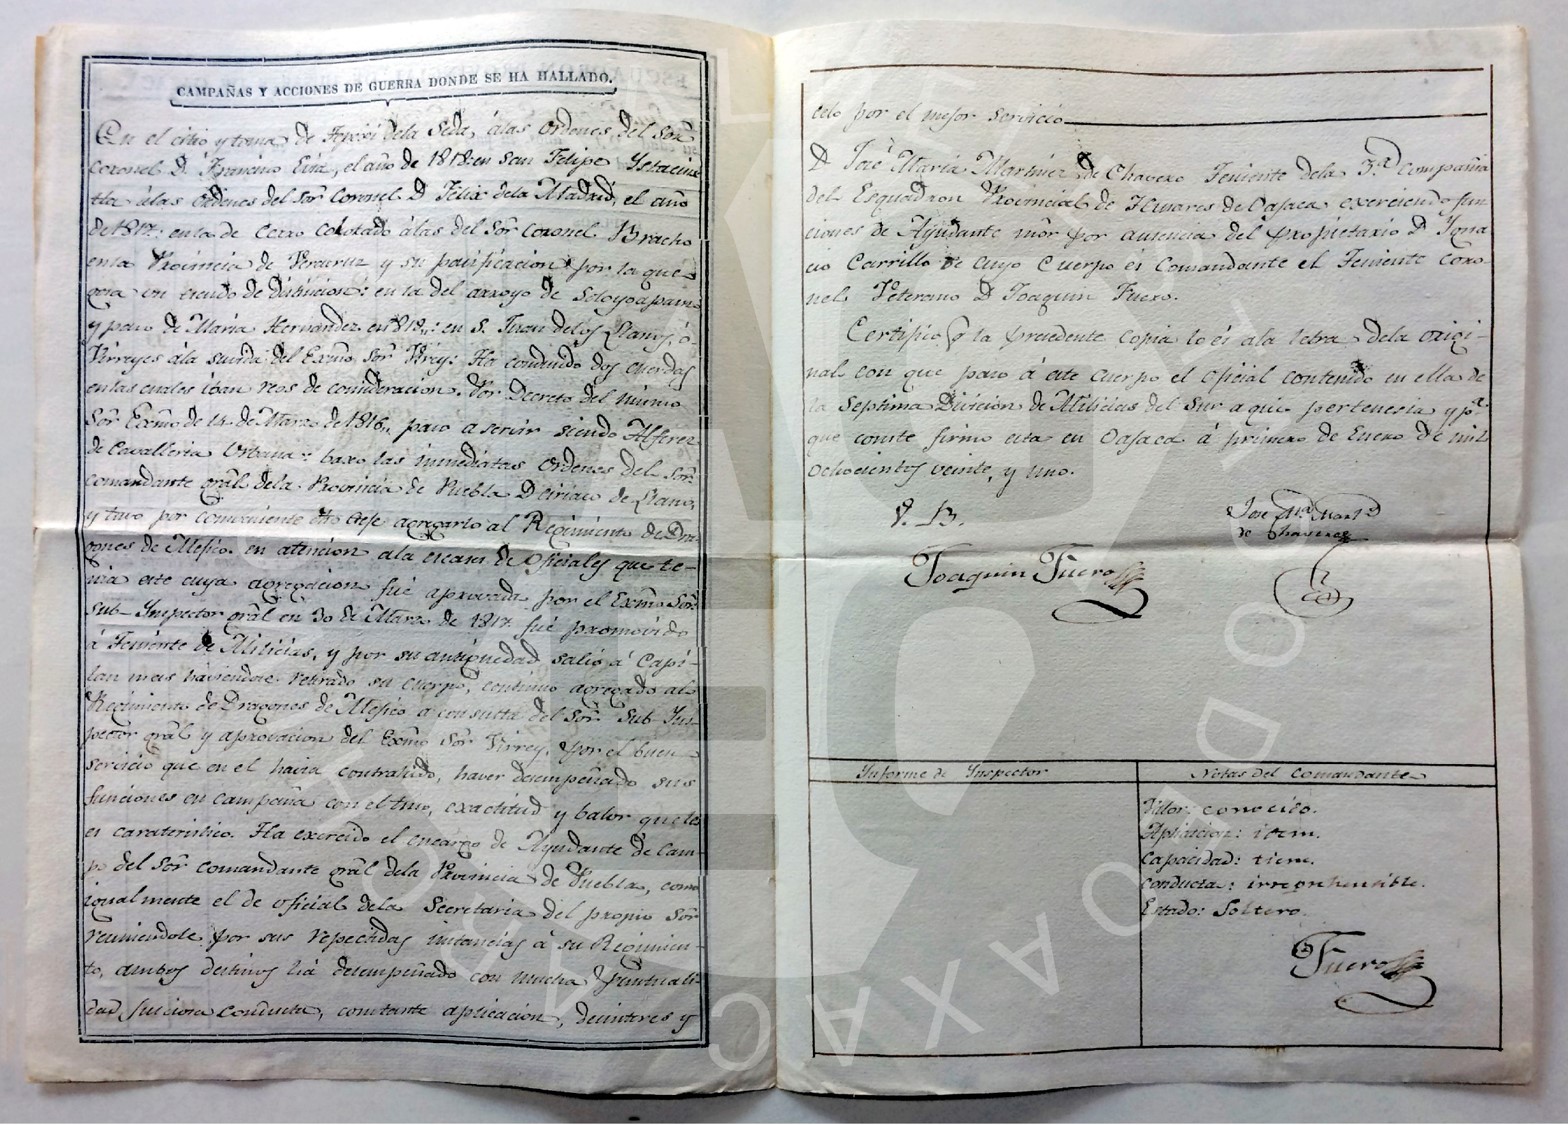 CAMPAÑAS Y ACCIONES DE GUERRA DONDE SE HA HALLADO.
En el citio y toma de dela Seda, álas ordenes del Señor
Coronel D. el año de 1812: en San Felipe
álas ordenes del Sor. Coronel D. Felix dela Madrid, el año
de 1812: enla de Cerro Colorado álas del Sor Coronel Bracho
enla Provincia de Veracruz y su pacificacion por la que
gosa en escudo de distincion: en la del arroyo de
y paso de Maria Hernandez en en S. Juan delos Llanos, ó
Virreyes ála salida del Exmo Sor. Virey: Ha conducido dos cuerdas
enlas cuales iban reos de concideracion. Por Decreto del mismo
Sor Exmo de 14 de Marzo de 1816, paso a servir siendo Alferez
de Cavalleria Urbana: baxo las inmediatas ordenes del Sor
comandante gral. dela Provincia de Puebla D Ciriaco de Llano,
y tuvo por conveniente agregarlo al Regimiento de Dra
gones de Mejico. en atencion ala escases de Oficiales que te-
nia este cuya agregacion fué aprovada por el Exmo Sor
Sub-Inspector gral en 30 de Marzo de 1817. fué promovido
á Teniente de Milicias, y por su antiguedad salió á Capi-
tan mas haviendose retirado su cuerpo, continuo agregado al
Regimiento de Dragones de Mejico a consulta del Sor. Sub Yns-
pector gral y aprovacion del Exmo Sor Virrey, por el buen
servicio que en el havia contrahido, haver desempeñado sus
funciones en campaña con el tino, exactitud y balor que le
es caraterístico. Ha exercido el encargo de Ayudante de Cam
po del Sor comandante gral dela Provincia de Puebla, como
igualmente el de oficial dela Secretaria del propio Sor
reuniendole por sus repectidas instancias á su Regimien-
to, ambos destinos há desempeñado con mucha puntuali
dad, juiciosa conducta, constante aplicacion, desinteres y
celo por el mejor servicio
D. José Maria Martinez de Chavero Teniente dela 3.a Compañia
del Esquadron Provincial de Husares de Oajaca exerciendo fun
ciones de Ayudante mor por ausencia del propietario D Ygna
cio Carrillo de cuyo Cuerpo es Comandante el Teniente coro-
nel Veterano D Joaquin Fuero.
Certifico q la precedente Copia lo és ala letra dela origi-
nal con que paso á este cuerpo el oficial contenido en ella de
la Septima Division de Milicias del Sur a qe pertenecia y pa
que conste firmo esta en Oajaca á primero de Enero de mil
ochocientos veinte, y uno.
V. B.
José Ma Martz
de Chavero
Joaquin Fuero
Ynforme de Ynspector
Notas del Comandante
Valor: conocido.
Aplicacion: idem.
Capacidad: tiene.
Conducta: irreprehensible.
Estado: Soltero.
Fuero